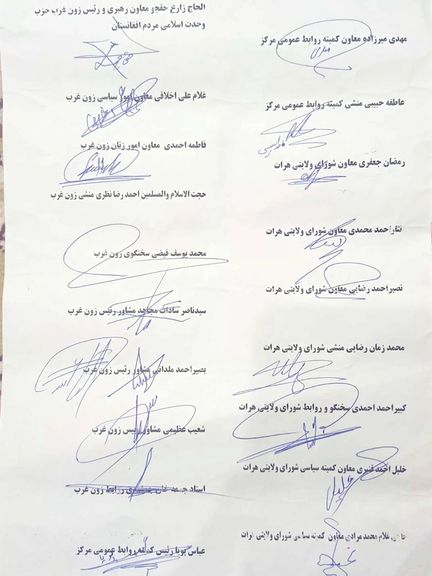 مهدی میرزاده معاون کمیته روابط عمومی مرکز
عاطفه حبیبی منشی کمیته روابط عمومی مرکز
رمضان جعفری معاون شورای ولایتی هرات
نثاراحمد محمدی معاون شورای ولایتی هرات
نصیراحمد رضایی معاون شورای ولایتی هرات
محمد زمان رضایی منشی شورای ولایتی هرات
کبیراحمد احمدی سخنگو و روابط شورای ولایتی هرات
خلیل احمد قنبری معاون کمیته سیاسی شورای ولایتی هرات
غلام محمد مرادی معاون کمیته سیاسی شورای ولایتی هرات
الحاج زارع خفجو معاون رهبری و رئیس زون غرب حزب
وحدت اسلامی مردم افغانستان
غلام علی اخلاقی معاون امور سیاسی زون غرب
فاطمه احمدی معاون امور زنان زون غرب
حجت الاسلام والمسلمین احمد رضا نظری منشی زون غرب
محمد یوسف فیضی سخنگوی زون غرب
سیدناصر سادات مجاهد مشاور رئیس زون غرب
بصیراحمد سلدانی مشاور رئیس زون غرب
شعیب عظیمی مشاور رئیس زون غرب
استاد جمعه خان روابط زون غرب
عباس پویا رئیس کمیته روابط عمومی مرکز